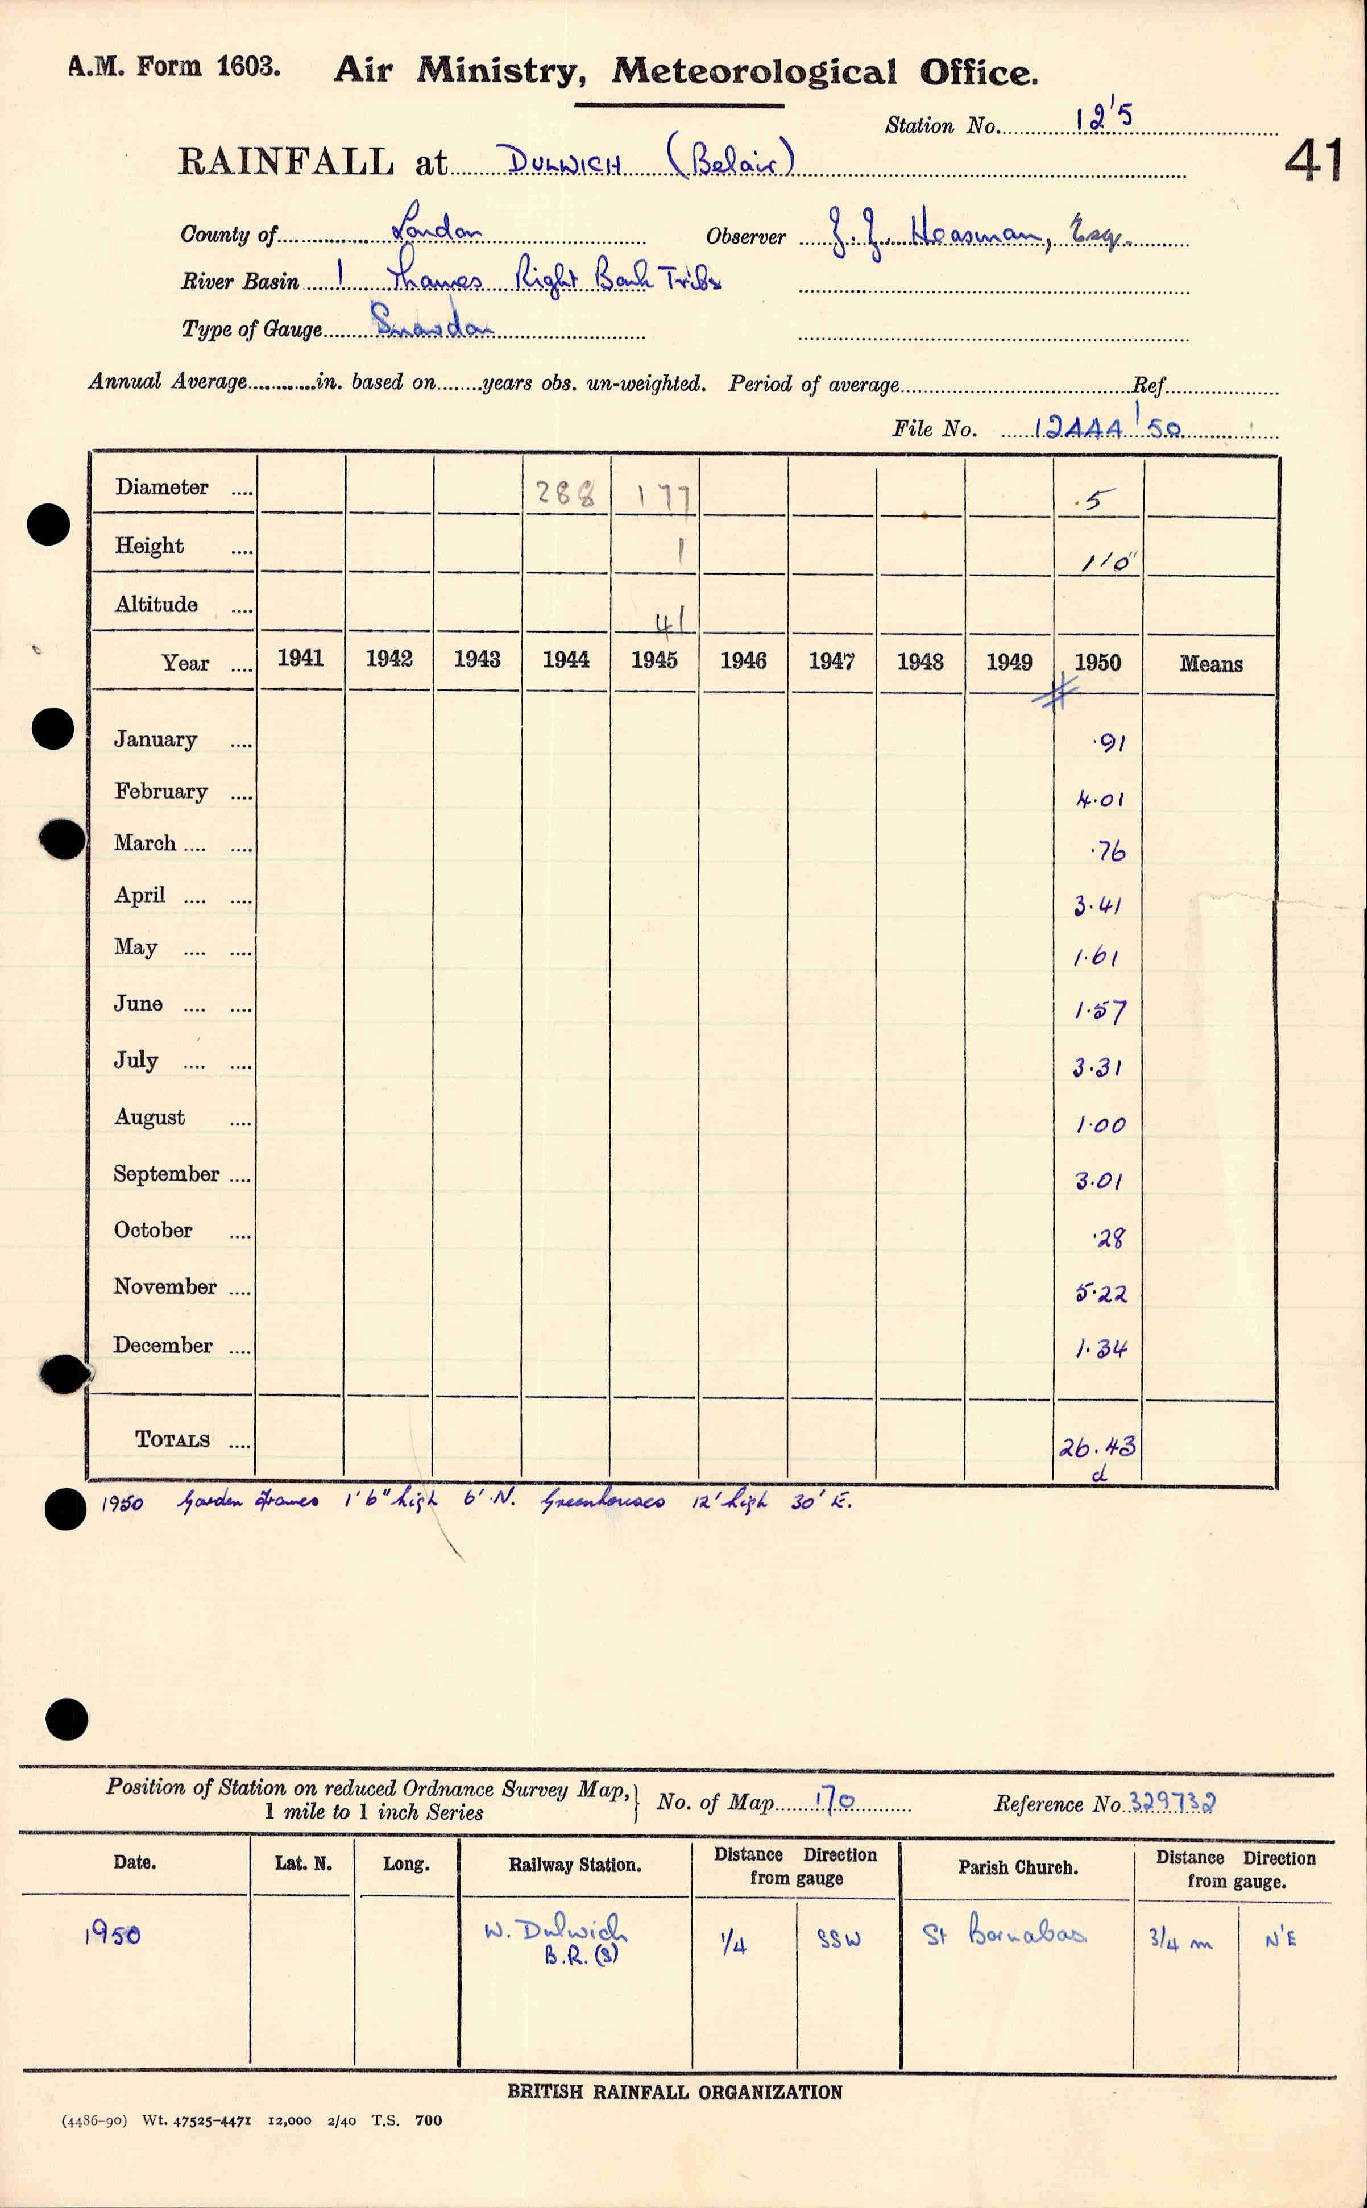 A.M. Form 1603. Air Ministry, Meteorological Office.
Station No. 12'5
41
RAINFALL at DULWICH (Belair)
County of London Observer J. J. Heasman, Esq.
River Basin 1 Thames Right Bank Tribs
Type of Gauge Snowdon
Annual Average............in. based on........years obs. un-weighted. Period of average........ Ref........
File No. 12444'50
Diameter .... 288 177 .5
Height .... 1 1'0"
Altitude .... 41
Year .... 1941 1942 1943 1944 1945 1946 1947 1948 1949 1950 Means
January .... .91
February .... 4.01
March .... .... .76
April .... .... 3.41
May .... .... 1.61
June .... .... 1.57
July .... .... 3.31
August .... 1.00
September .... 3.01
October .... .28
November .... 5.22
December .... 1.34
TOTALS .... 26.43
d
1950 Garden frames 1'6" high 6' N. Greenhouses 12' high 30' E.
Position of Station on reduced Ordnance Survey Map, } No. of Map 170 Reference No. 329732
1 mile to 1 inch Series
Date. Lat. N. Long. Railway Station. Distance Direction from gauge Parish Church. Distance Direction from gauge.
1950 W. Dulwich 1/4 SSW St Barnabas 3/4 m N'E
B.R. (S)
BRITISH RAINFALL ORGANIZATION
(4486-90) Wt. 47525-4471 12,000 2/40 T.S. 700